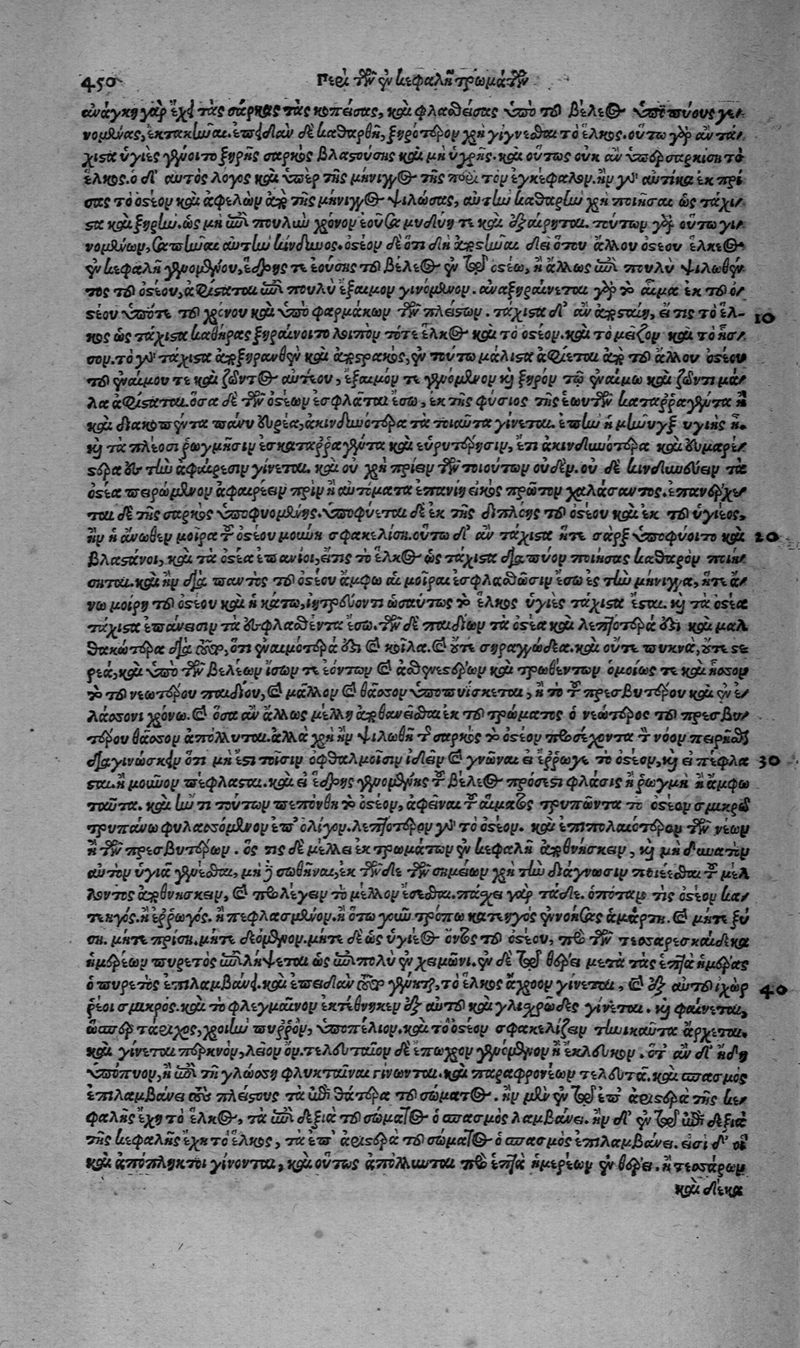 450 Περὶ τῶν ἐν κεφαλῇ τρωμάτων
ἀνάγκη γὰρ ἔχει τὰς σάρκας τὰς κοπείσας, καὶ φλασθείσας ὑπὸ τοῦ βέλεος ὑποπύους γι-
νομένας, ἐκτακῆναι. ἐπειδὰν δὲ καθαρθῇ, ξηρότερον χρὴ γίγνεσθαι τὸ ἕλκος. οὕτω γὰρ ἂν τά-
χιστα ὑγιὲς γένοιτο ξηρῆς σαρκὸς βλαστούσης καὶ μὴ ὑγρῆς. καὶ οὕτως οὐκ ἂν ὑπερσαρκίσῃ τὸ
ἕλκος. ὁ δ' αὐτὸς λόγος καὶ ὑπὲρ τῆς μήνιγγος τῆς περὶ τὸν ἐγκέφαλον. ἢν γὰρ αὐτίκα ἐκπρί-
σας τὸ ὀστέον καὶ ἀφελὼν ἀπὸ τῆς μήνιγγος ψιλώσας, αὐτὴν καθαρὴν χρὴ ποιῆσαι ὡς τάχι-
στα καὶ ξηρὴν. ὡς μὴ ἐπὶ πουλὺν χρόνον ἐοῦσα μυδήνῃ τε καὶ ἐξαίρηται. τούτων γὰρ οὕτω γι-
νομένων, σαπῆναι αὐτὴν κίνδυνος. ὀστέον δὲ ὅ τι δὴ ἀποστῆναι δεῖ ἀπὸ τοῦ ἄλλου ὀστέου ἕλκεος
ἐν κεφαλῇ γενομένου, ἕδρης τε ἐούσης τοῦ βέλεος ἐν τῷ ὀστέῳ, ἢ ἄλλως ἐπὶ πουλὺ ψιλωθέν-
τος τοῦ ὀστέου, ἀφίσταται ἐπὶ πουλὺ ἔξαιμον γινόμενον. ἀναξηραίνεται γὰρ τὸ αἷμα ἐκ τοῦ ὀ-
στέου ὑπό τε τοῦ χρόνου καὶ ὑπὸ φαρμάκων τῶν πλείστων. τάχιστα δ' ἂν ἀποσταίη, εἴ τις τὸ ἕλ- 10
κος ὡς τάχιστα καθήρας ξηραίνοι τὸ λοιπὸν τό τε ἕλκος καὶ τὸ ὀστέον. καὶ τὸ μεῖζον καὶ τὸ ἧσ-
σον. τὸ γὰρ τάχιστα ἀποξηρανθὲν καὶ ἀποστρακωθέν, ἐν τούτῳ μάλιστα ἀφίσταται ἀπὸ τοῦ ἄλλου ὀστέου
τοῦ ἐναίμου τε καὶ ζῶντος αὐτέου, ἔξαιμόν τε γενόμενον καὶ ξηρὸν τῷ ἐναίμῳ καὶ ζῶντι μά-
λα ἀφίσταται. ὅσα δὲ τῶν ὀστέων ἐσφλᾶται ἔσω, ἐκ τῆς φύσιος τῆς ἑωυτῶν καταρραγέντα ἢ
καὶ διακοπέντα πάνυ εὐρέα, ἀκινδυνότερα τὰ τοιαῦτα γίνεται. ἐπὴν ἡ μῆνιγξ ὑγιὴς ᾖ.
καὶ τὰ πλέοσι ῥωγμῇσιν ἐσκαταρραγέντα καὶ εὐρυτέρῃσιν, ἔτι ἀκινδυνότερα καὶ εὐμαρέ-
στερα ἐς τὴν ἀφαίρεσιν γίνεται. καὶ οὐ χρὴ πρίειν τῶν τοιούτων οὐδέν. οὐδὲ κινδυνεύειν τὰ
ὀστέα πειρώμενον ἀφαιρέειν πρὶν ἢ αὐτόματα ἐπανίῃ εἰκὸς πρῶτον χαλάσαντος. ἐπανέρχε-
ται δὲ τῆς σαρκὸς ὑποφυομένης. ὑποφύεται δὲ ἐκ τῆς διπλόης τοῦ ὀστέου καὶ ἐκ τοῦ ὑγιέος,
ἢν ἡ ἄνωθεν μοῖρα τοῦ ὀστέου μούνη σφακελίσῃ. οὕτω δ' ἂν τάχιστα ἥ τε σὰρξ ὑποφύοιτο καὶ 20
βλαστάνοι, καὶ τὰ ὀστέα ἐπανίοι, εἴ τις τὸ ἕλκος ὡς τάχιστα διάπυον ποιήσας καθαρὸν ποιή-
σηται. καὶ ἢν διὰ παντὸς τοῦ ὀστέου ἄμφω αἱ μοῖραι ἐσφλασθῶσιν ἔσω ἐς τὴν μήνιγγα, ἥ τε ἄ-
νω μοίρη τοῦ ὀστέου καὶ ἡ κάτω, ἰητρεύοντι ὡσαύτως τὸ ἕλκος ὑγιὲς τάχιστα ἔσται. καὶ τὰ ὀστέα
τάχιστα ἐπάνεισιν τὰ ἐσφλασθέντα ἔσω. τῶν δὲ παιδίων τὰ ὀστέα καὶ λεπτότερά ἐστι καὶ μαλ-
θακώτερα διὰ τοῦτο, ὅτι ἐναιμότερά ἐστι καὶ κοῖλα. καὶ οὔτε σηραγγώδεα. καὶ οὔτε πυκνὰ, οὔτε στε-
ρεά, καὶ ὑπὸ τῶν βελέων ἴσων τε ἐόντων καὶ ἀσθενεστέρων καὶ τρωθέντων ὁμοίως τε καὶ ἧσσον
τὸ τοῦ νεωτέρου παιδίου, καὶ μᾶλλον καὶ θᾶσσον ὑποπυΐσκεται, ἢ τὸ τοῦ πρεσβυτέρου καὶ ἐν ἐ-
λάσσονι χρόνῳ. καὶ ὅσα ἂν ἄλλως μέλλῃ ἀποθανεῖσθαι ἐκ τοῦ τρώματος ὁ νεώτερος τοῦ πρεσβυ-
τέρου θᾶσσον ἀπόλλυται. ἀλλὰ χρὴ ἢν ψιλωθῇ τῆς σαρκὸς τὸ ὀστέον προσέχοντα τὸν νόον πειρῆσθαι
διαγινώσκειν ὅτι μή ἐστι τοῖσιν ὀφθαλμοῖσιν ἰδεῖν καὶ γνῶναι εἰ ἔρρωγε τὸ ὀστέον, καὶ εἰ πέφλα- 30
σται. ἢ μοῦνον πέφλασται. καὶ εἰ ἕδρης γενομένης τοῦ βέλεος πρόσεστι φλάσις ἢ ῥωγμὴ ἢ ἄμφω
ταῦτα. καὶ ἤν τι τούτων πεπόνθῃ τὸ ὀστέον, ἀφεῖναι τοῦ αἵματος τρυπῶντα τὸ ὀστέον σμικρῷ
τρυπάνῳ φυλασσόμενον ἐπ' ὀλίγον. λεπτότερον γὰρ τὸ ὀστέον. καὶ ἐπιπολαιότερον τῶν νέων
ἢ τῶν πρεσβυτέρων. ὅς τις δὲ μέλλει ἐκ τρωμάτων ἐν κεφαλῇ ἀποθνήσκειν, καὶ μὴ δυνατὸν
αὐτὸν ὑγιᾶ γενέσθαι, μὴ δὲ σωθῆναι, ἐκ τῶνδε τῶν σημείων χρὴ τὴν διάγνωσιν ποιέεσθαι τοῦ μέλ-
λοντος ἀποθνήσκειν, καὶ προλέγειν τὸ μέλλον ἔσεσθαι. πάσχει γὰρ τάδε. ὁπόταν τις ὀστέον κα-
τηγὸς. ἢ ἐρρωγός. ἢ πεφλασμένον. ἢ ὅτῳ γοῦν τρόπῳ κατηγὸς ἐννοήσας ἁμάρτῃ. καὶ μήτε ξύ-
σῃ. μήτε πρίσῃ. μήτε δεόμενον. μήτε δὲ ὡς ὑγιέος ὄντος τοῦ ὀστέου, πρὸ τῶν τεσσαρεσκαίδεκα
ἡμερέων πυρετὸς ἐπιλήψεται ὡς ἐπὶ πολὺ ἐν χειμῶνι. ἐν δὲ τῷ θέρει μετὰ τὰς ἑπτὰ ἡμέρας
ὁ πυρετὸς ἐπιλαμβάνει. καὶ ἐπειδὰν τοῦτο γένηται, τὸ ἕλκος ἄχροον γίνεται, καὶ ἐξ αὐτοῦ ἰχὼρ 40
ῥέει σμικρὸς. καὶ τὸ φλεγμαῖνον ἐκτέθνηκεν ἐξ αὐτοῦ καὶ γλισχρῶδες γίνεται. καὶ φαίνεται,
ὥσπερ τάριχος, χροιὴν πυρρόν, ὑποπέλιον. καὶ τὸ ὀστέον σφακελίζειν τηνικαῦτα ἄρχεται.
καὶ γίνεται πέρκνον, λεῖον ὄν. τελευταῖον δὲ ἔπωχρον γενόμενον ἢ ἔκλευκον. ὅτ' ἂν δ' ἤδη
ὑπόπυον, ᾖ ἐπὶ τῇ γλώσσῃ φλυκταῖναι γίνονται. καὶ παραφρονέων τελευτᾷ. καὶ σπασμὸς
ἐπιλαμβάνει τοὺς πλείστους τὰ ἐπὶ θάτερα τοῦ σώματος. ἢν μὲν ἐν τῷ ἐπ' ἀριστερὰ τῆς κε-
φαλῆς ἔχῃ τὸ ἕλκος, τὰ ἐπὶ δεξιὰ τοῦ σώματος ὁ σπασμὸς λαμβάνει. ἢν δ' ἐν τῷ ἐπὶ δεξιὰ
τῆς κεφαλῆς ἔχῃ τὸ ἕλκος, τὰ ἐπ' ἀριστερὰ τοῦ σώματος ὁ σπασμὸς ἐπιλαμβάνει. εἰσὶ δ' οἳ
καὶ ἀπόπληκτοι γίνονται, καὶ οὕτως ἀπόλλυνται πρὸ ἑπτὰ ἡμερέων ἐν θέρει. ἢ τεσσάρων
καὶ δέκα